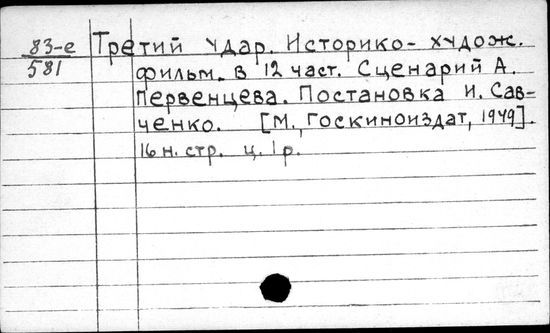 83-е Третий удар. Историко-худож.
581 фильм. в 12 част. Сценарий А.
Первенцева. Постановка И. Сав-
ченко. [М., Госкиноиздат, 1949].
16 н. стр. ц. 1 р.